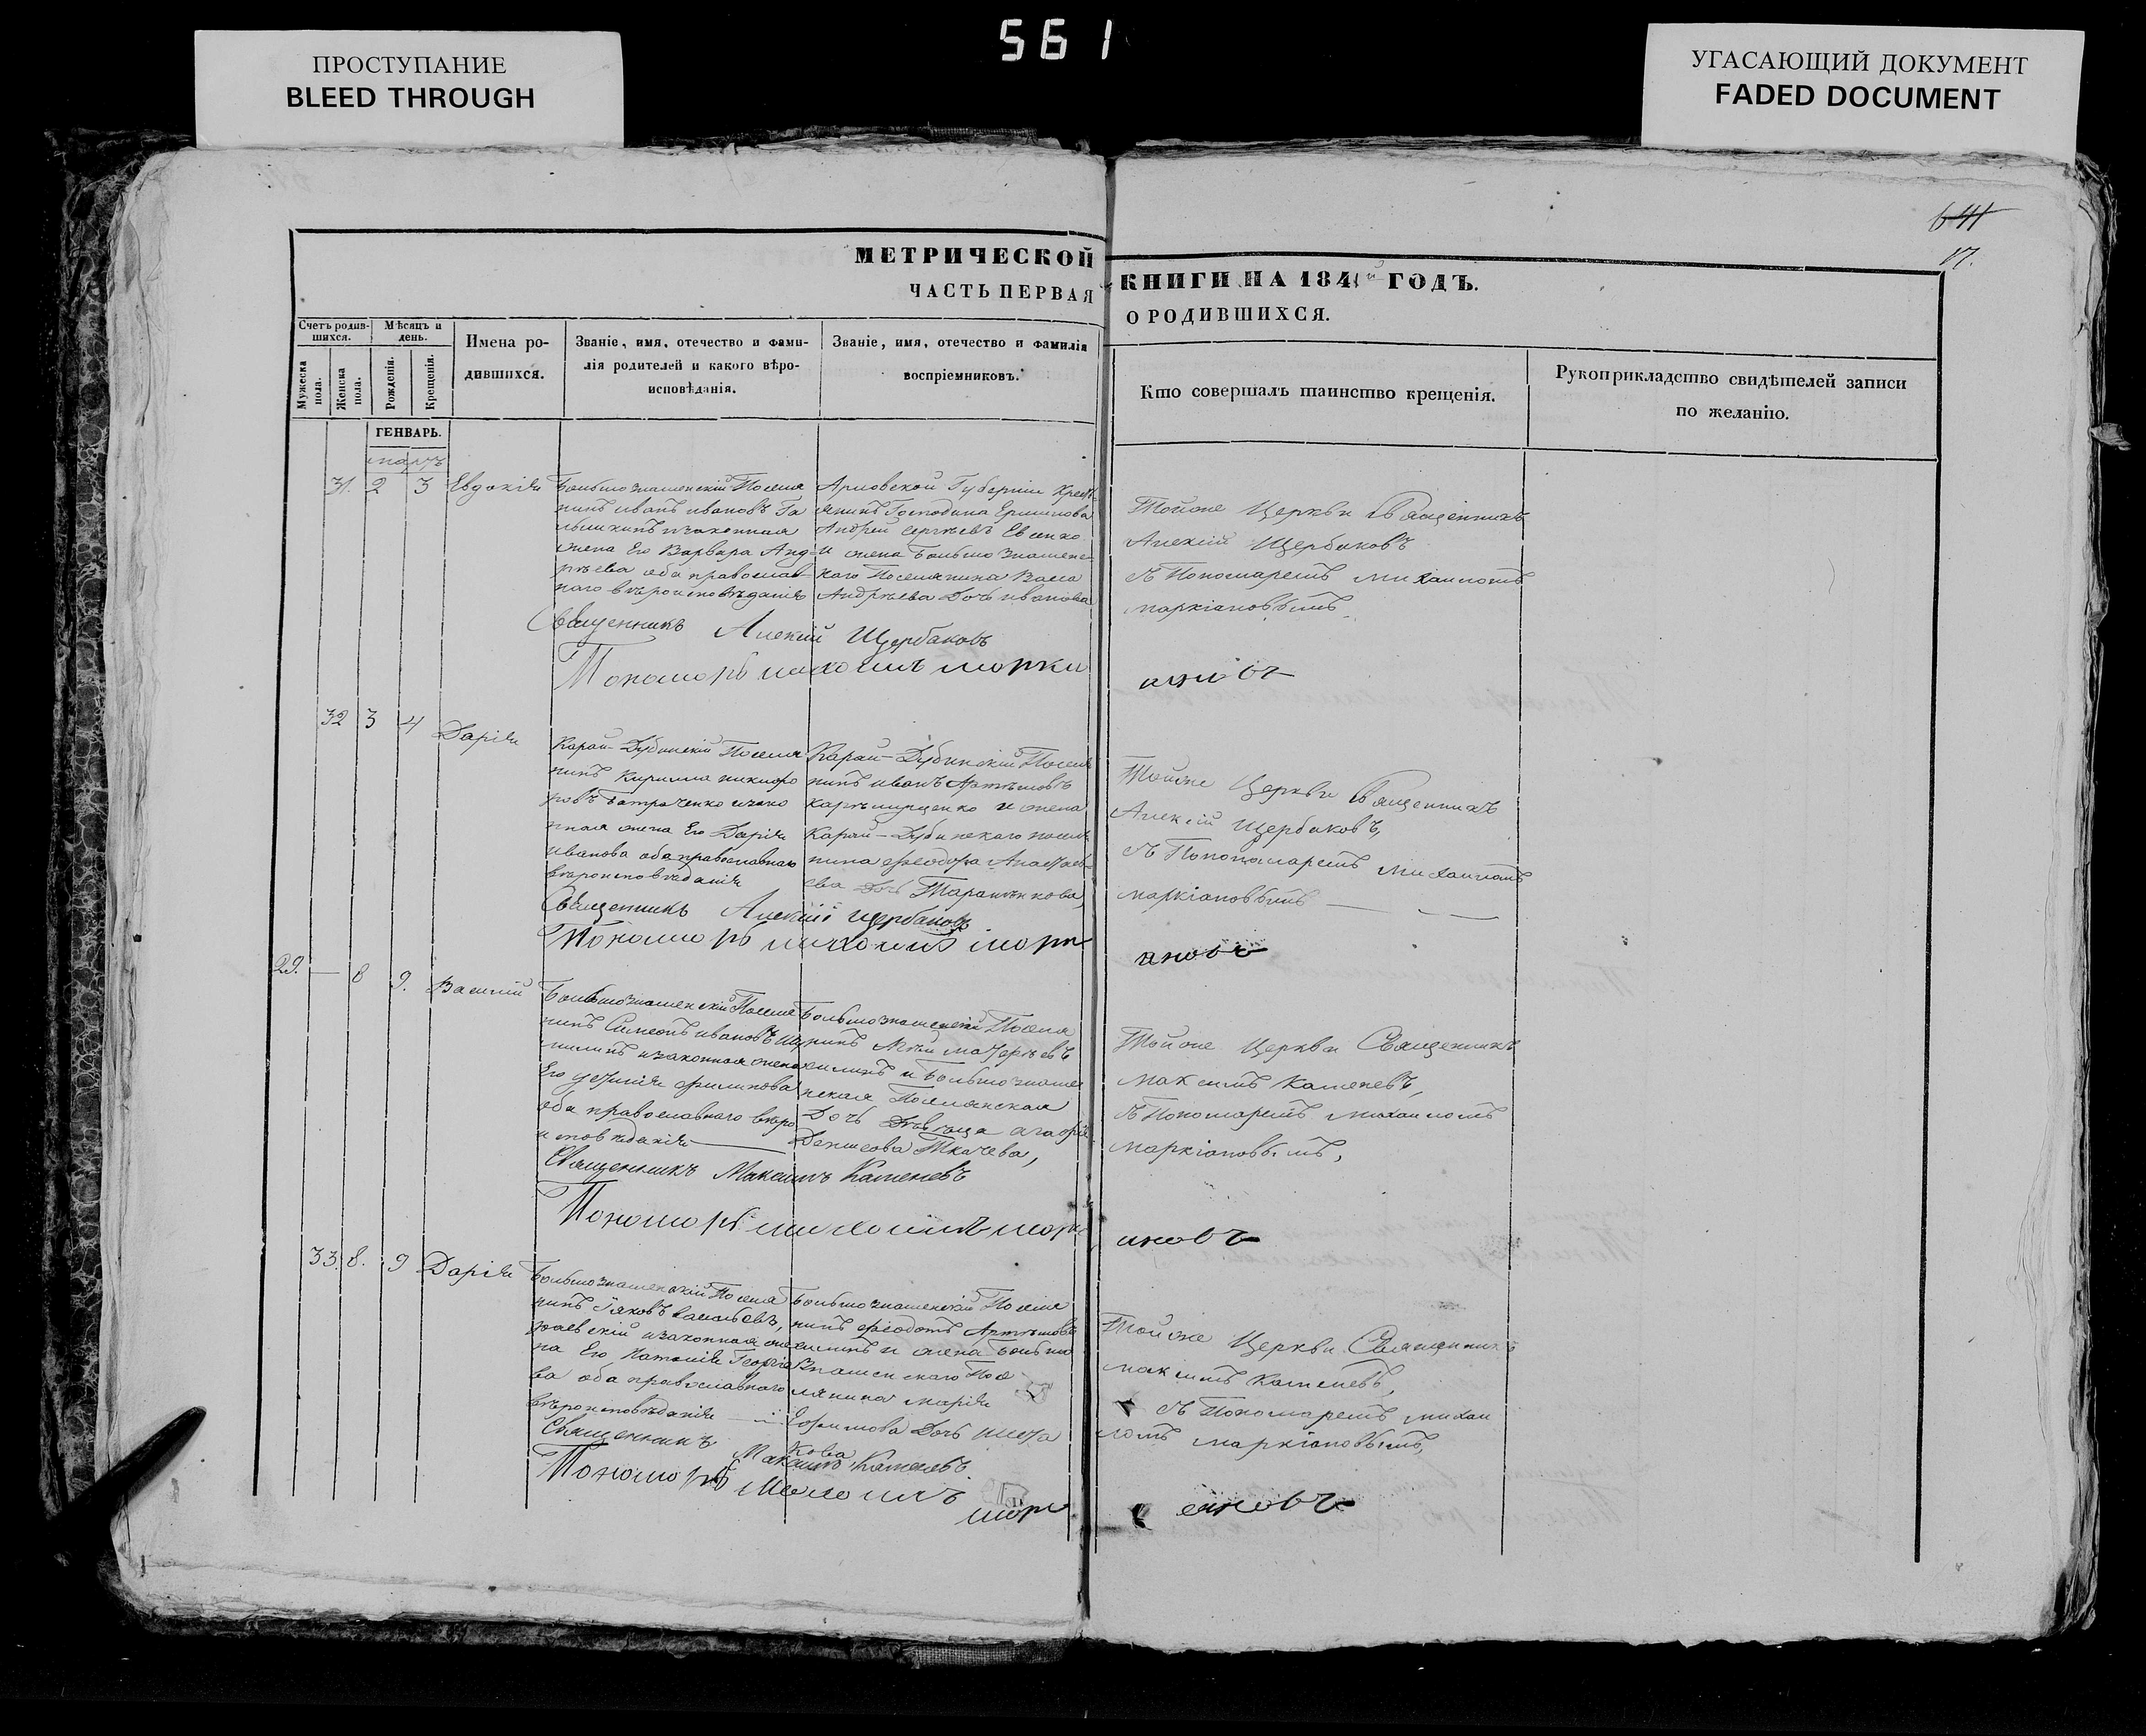 561
ПРОСТУПАНИЕ
BLEED THROUGH
УГАСАЮЩИЙ ДОКУМЕНТ
FADED DOCUMENT
641
17.
МЕТРИЧЕСКОЙ КНИГИ НА 1841й ГОДЪ.
ЧАСТЬ ПЕРВАЯ О РОДИВШИХСЯ.
Счетъ родив-
шихся.
Мужеска пола.
Женска пола.
Мѣсяцъ и
день.
Рожденія.
Крещенія.
Имена ро-
дившихся.
Званіе, имя, отечество и фами-
лія родителей и какого вѣро-
исповѣданія.
Званіе, имя, отечество и фамилія
воспріемниковъ.
Кто совершалъ таинство крещенія.
Рукоприкладство свидѣтелей записи
по желанію.
ГЕНВАРЬ.
мартъ
31. 2 3 Евдокія
Большознаменскій Поселя
нинъ иванъ ивановъ Га
изаконная
жена Его Варвара Анд-
рѣева оба православ-
наго вѣроисповѣданія
Губерніи Крест-
янинъ Господина
Андрей Сергѣевъ
и жена Большознаменс-
каго Поселянина
Андрѣева Дочь иванова
Тойже Церкви Священникъ
Алексій Щербаковъ
съ Пономаремъ михаиломъ
маркіановымъ
Священникъ Алексій Щербаковъ
Пономарь михаилъ марки
ановъ
32 3 4 Дарія
Карай-Дубинскій Поселя
нинъ Кирилла никифо
ровъ Батраченко изако
нная жена Его Дарія
иванова оба православнаго
вѣроисповѣданія
Карай-Дубинскій Поселя
нинъ иванъ Артѣмовъ
и жена
Карай-Дубинскаго поселя
нина феодора
ева Дочь
Тойже Церкви Священникъ
Алексій Щербаковъ,
съ Понономаремъ михаиломъ
маркіановымъ
Священникъ Алексій Щербаковъ
Пономарь михаилъ марки
ановъ
29. — 8 9. Василій
Большознаменскій Поселя
нинъ Симеонъ ивановъ
изаконная жена
Его филипова
оба православнаго вѣро
исповѣданія
Большознаменскій Поселя
нинъ
и Большознаме
нская Поселянская
Дочь Дѣвица агафія
Денисова Ткачева,
Тойже Церкви Священникъ
максимъ Каменевъ,
съ Пономаремъ михаиломъ
маркіановымъ,
Священникъ Максимъ Каменевъ
Пономарь михаилъ марки
ановъ
33. 8. 9 Дарія
Большознаменскій Поселя
нинъ Іяковъ васильевъ,
изаконная же
на Его Наталія Георгіе
ва оба православнаго
вѣроисповѣданія
Большознаменскій Поселя
нинъ феодотъ Артѣмовъ
и жена Большо
Знаменскаго Посе
лянина марія
Ефимова Дочь
кова
Тойже Церкви Священникъ
максимъ Каменевъ,
съ Пономаремъ михаи
ломъ маркіановымъ,
Священникъ
Максимъ Каменевъ
Пономарь михаилъ
марки
ановъ